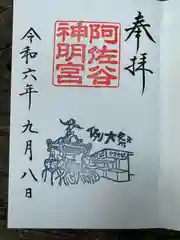 奉拝
阿佐谷
神明宮
例大祭
令和六年九月八日